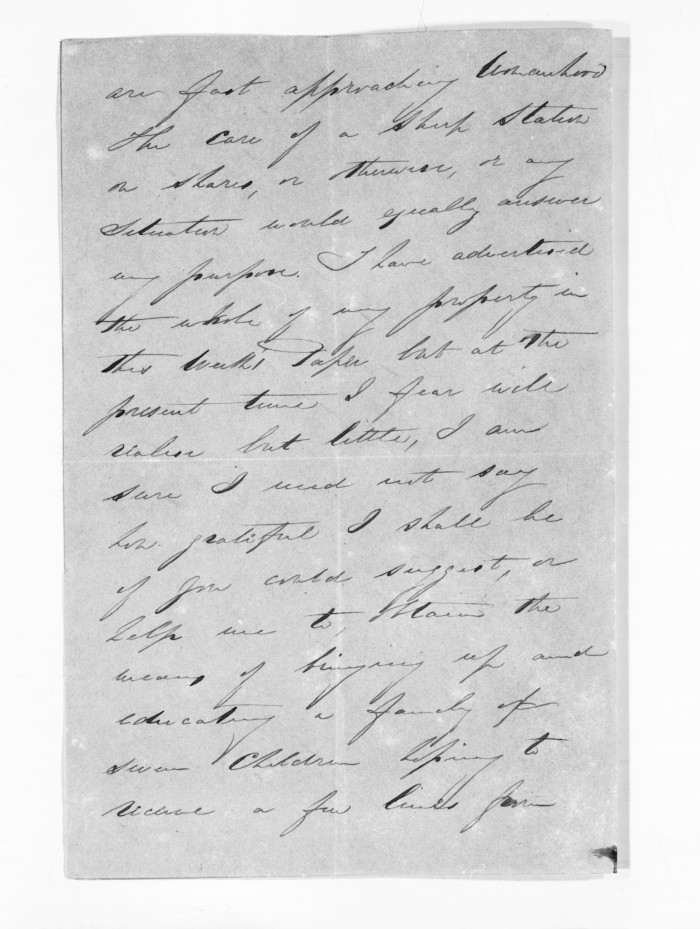 are fast approaching Womanhood
The care of a Sheep Station
on shares, or otherwise, or any
Situation would equally answer
my purpose. I have advertised
the whole of my property in
this Week's Paper but at the
present time I fear will
realise but little, I am
sure I need not say
how grateful I shall be
if you could suggest, or
help me to, obtain the
means of bringing up and
educating a family of
seven Children hoping to
receive a few lines from